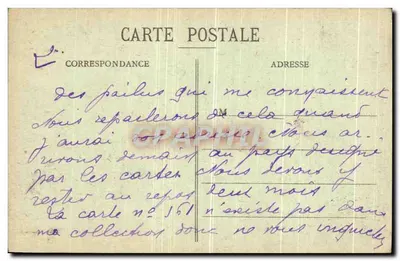 CARTE POSTALE
CORRESPONDANCE
ADRESSE
des poilus qui me connaissent
Nous reparlerons de cela quand
j'aurai Nous ar
riverons demain au pays designé
par les cartes Nous devons y
rester au repos deux mois
La carte n° 151 n'existe pas dans
ma collection donc ne vous inquietez